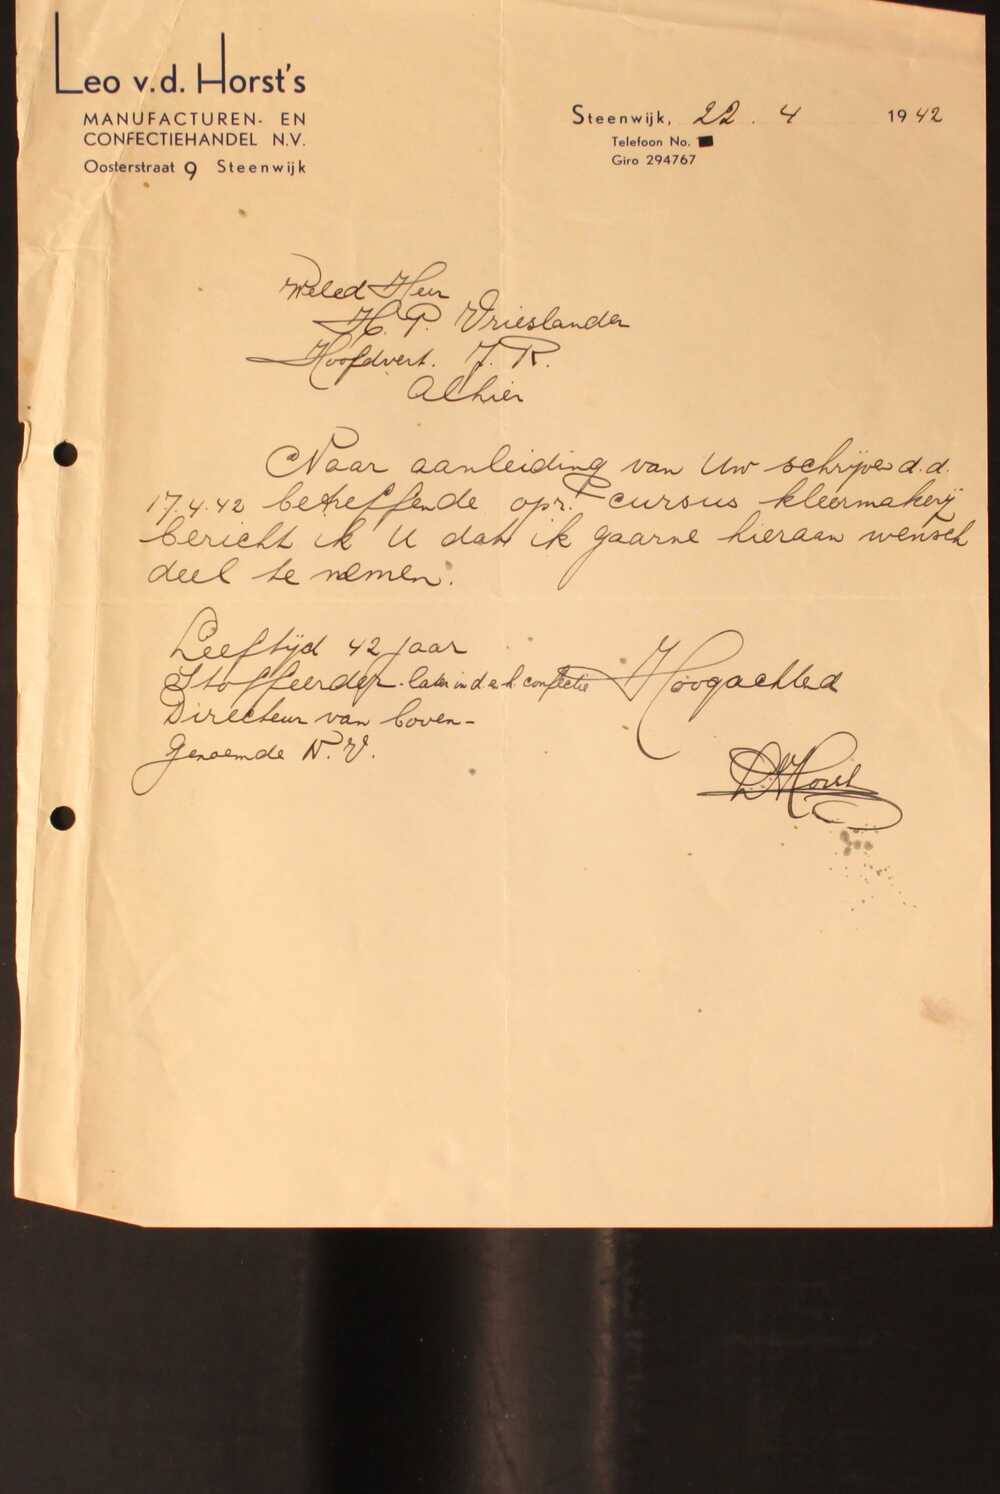 Leo v.d. Horst's
MANUFACTUREN- EN
CONFECTIEHANDEL N.V.
Oosterstraat 9 Steenwijk
Steenwijk, 22 . 4 1942
Telefoon No.
Giro 294767
Weled Heer
H. P. Vrieslander
Hoofdvert. J. R.
Alhier
Naar aanleiding van Uw schrijven d.d.
17.4.42 betreffende opr. cursus kleermakerij
bericht ik U dat ik gaarne hieraan wensch
deel te nemen.
Leeftijd 42 jaar
Stoffeerder later in d. & h. confectie
Directeur van boven-
genoemde N.V.
Hoogachtend
Horst